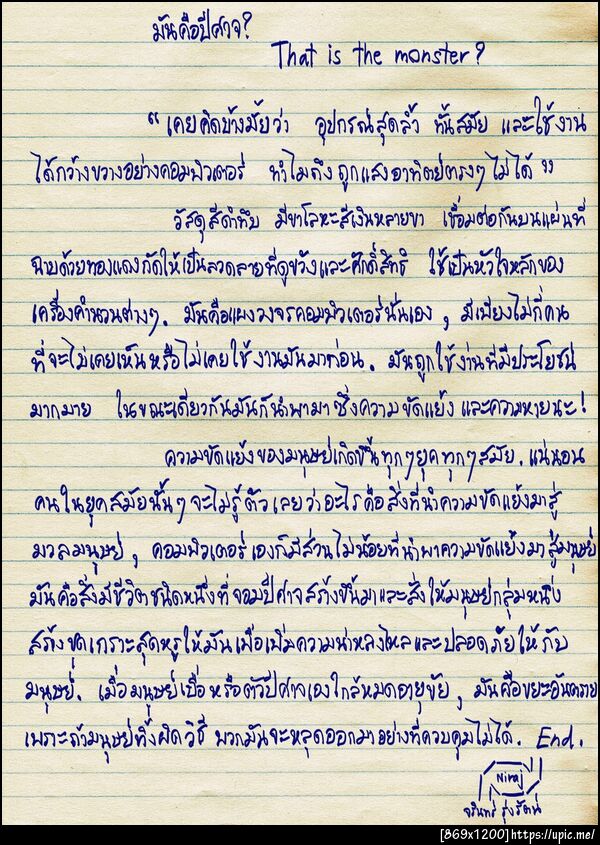 มันคือปีศาจ?
That is the monster?
“ เคยคิดบ้างมั้ยว่า อุปกรณ์สุดล้ำ ทันสมัย และใช้งาน
ได้กว้างขวางอย่างคอมพิวเตอร์ ทำไมถึงถูกแสงอาทิตย์ตรงๆ ไม่ได้ ”
วัสดุสีดำทึบ มีขาโลหะสีเงินหลายขา เชื่อมต่อกันบนแผ่นที่
ฉาบด้วยทองแดงกัดให้เป็นลวดลายที่ดูขวังและศักดิ์สิทธิ์ ใช้เป็นหัวใจหลักของ
เครื่องคำนวนต่างๆ. มันคือแผงวงจรคอมพิวเตอร์นั่นเอง , มีเพียงไม่กี่คน
ที่จะไม่เคยเห็นหรือไม่เคยใช้งานมันมาก่อน. มันถูกใช้งานที่มีประโยชน์
มากมาย ในขณะเดียวกันมันก็นำพามาซึ่งความขัดแย้ง และความหายนะ!
ความขัดแย้งของมนุษย์เกิดขึ้นทุกๆยุคทุกๆสมัย. แน่นอน
คนในยุคสมัยนั้นๆ จะไม่รู้ตัวเลยว่าอะไรคือสิ่งที่นำความขัดแย้งมาสู่
มวลมนุษย์ , คอมพิวเตอร์เองก็มีส่วนไม่น้อยที่นำพาความขัดแย้งมาสู่มนุษย์
มันคือสิ่งมีชีวิตชนิดหนึ่งที่จอมปีศาจสร้างขึ้นมาและสั่งให้มนุษย์กลุ่มหนึ่ง
สร้างชุดเกราะสุดหรูให้มันเพื่อเพิ่มความน่าหลงไหลและปลอดภัยให้กับ
มนุษย์. เมื่อมนุษย์เบื่อ หรือตัวปีศาจเองใกล้หมดอายุขัย , มันคือขยะอันตราย
เพราะถ้ามนุษย์ทิ้งผิดวิธี พวกมันจะหลุดออกมาอย่างที่ควบคุมไม่ได้. End.
Niraj
จรินทร์ รุ่งรัตน์
[869x1200]https://upic.me/